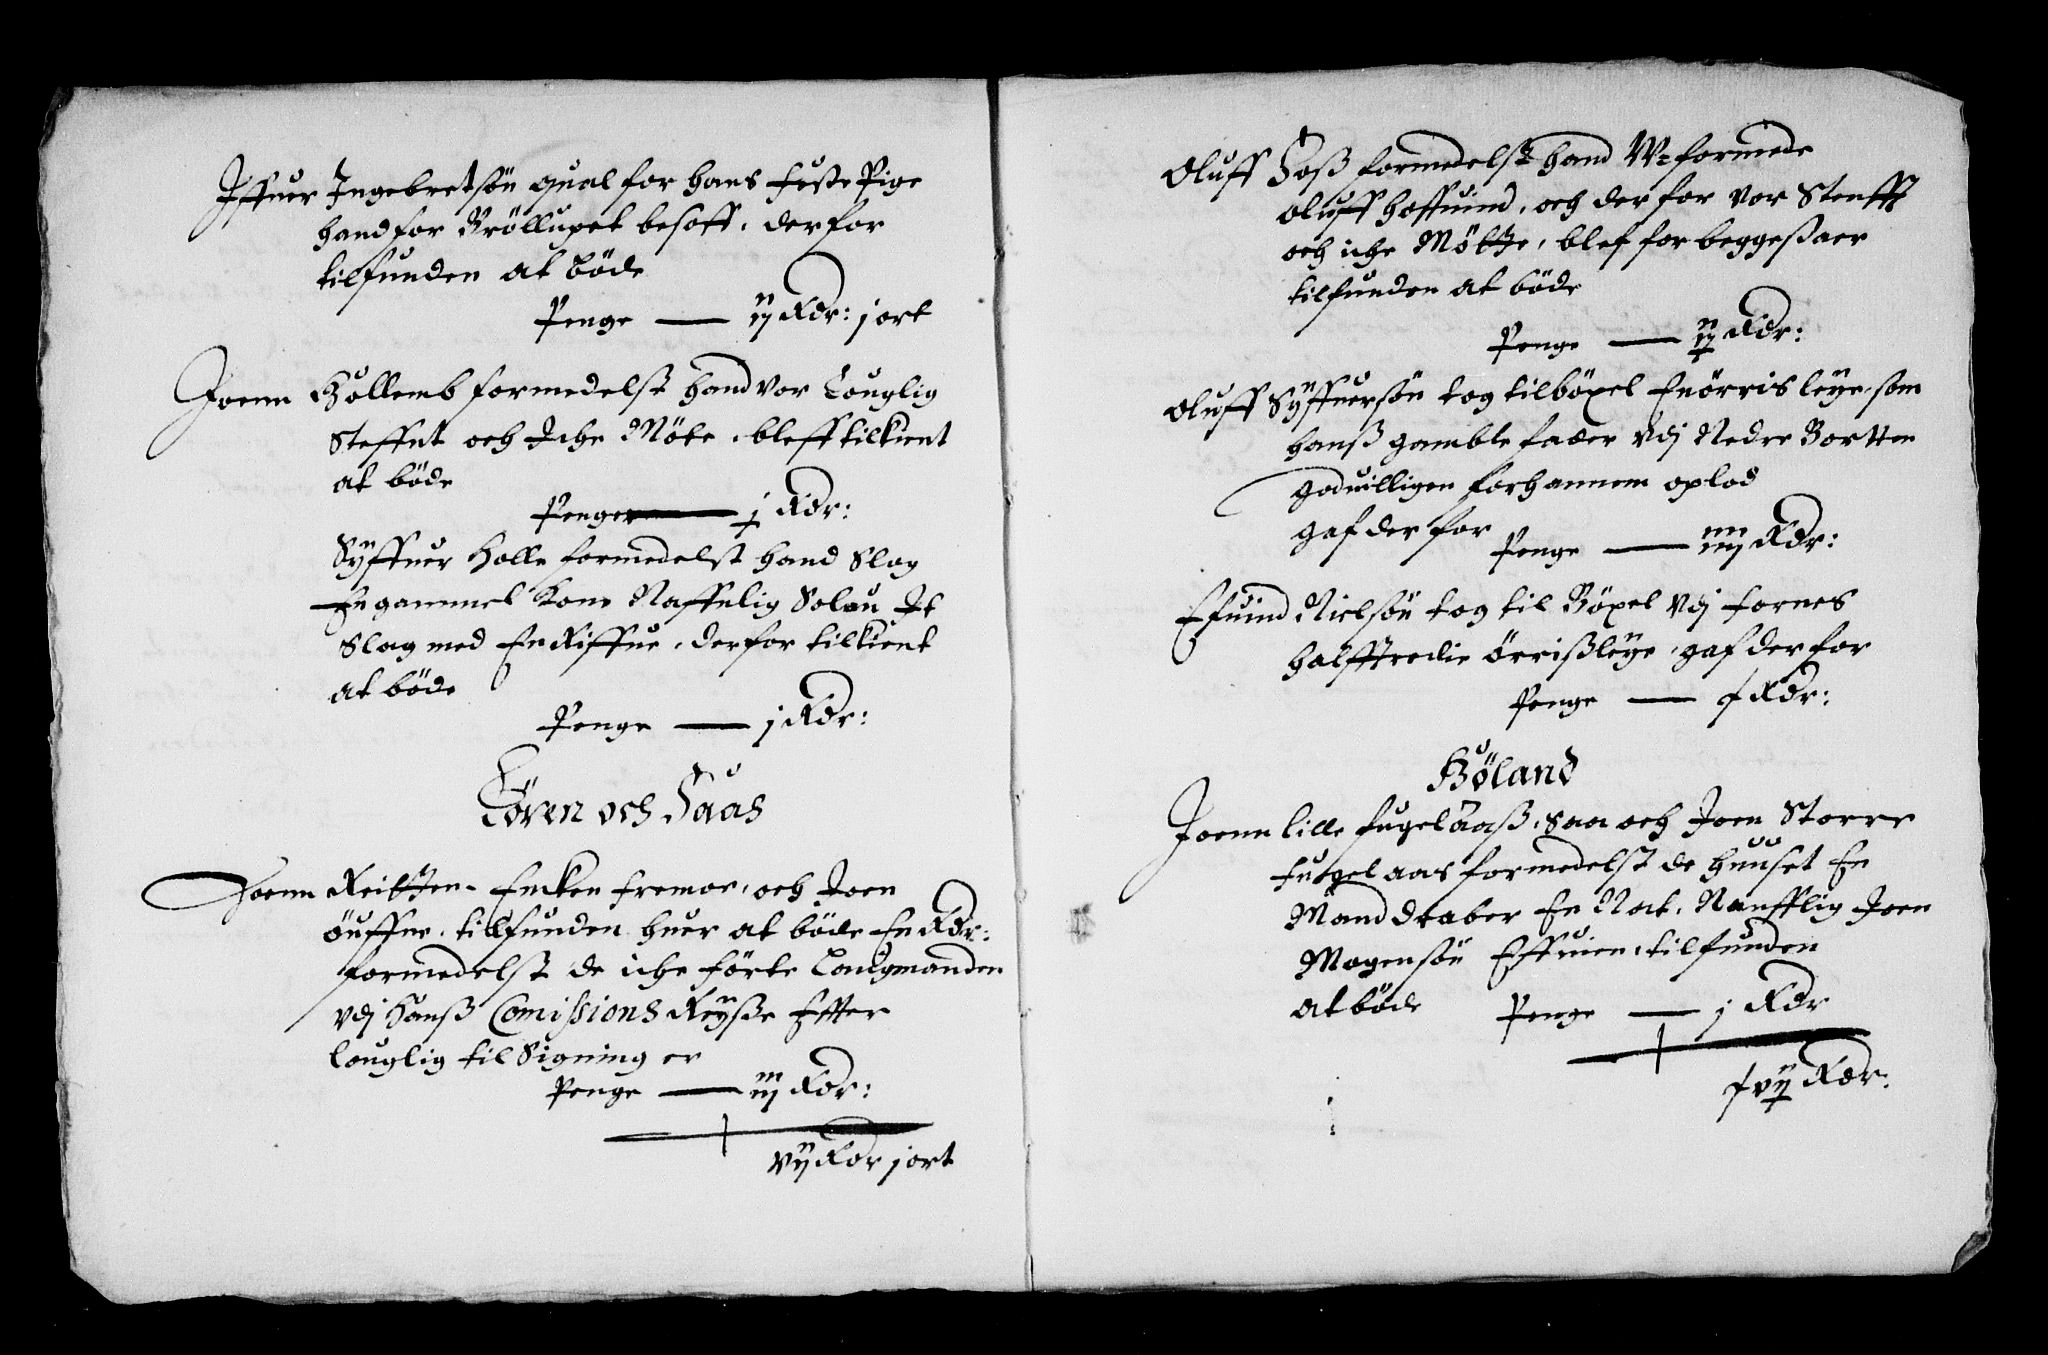 Iffuer Ingebretsön qual for hans feste Pige
hand for Bröllupet besoff, der for
tilfunden at böde
Penge — ij Rdr: j ort
Joenn Hollemb formedelst hand vor Louglig
Steffnt och Iche Möte, bleff tilkient
at böde
Penge — j Rdr:
Syffuer Holle formedelst hand Slog
En gammel Kone Naffnlig Solou It
Slag med En Kiffue, der for tilkient
at böde
Penge — j Rdr:
Löven och Saas
Joenn Reitten. Encken fremoe, och Joen
öuffne, tilfunden huer at böde En Rdr:
formedelst de iche förte Lougmanden
vdj Hanss Comissions Reysse Efter
louglig til Signing er
Penge — iij Rdr:
vij Rdr j ort
Oluff Soss formedelst hand W-formede
Oluff Hoffuind, och der for vor Stenfft
och iche Mötte, blef for begge saer
tilfunden at böde
Penge — ij Rdr:
Oluff Syffuersön tog til böxel En örris leye, som
hanss gamble fader vdj Nedre Bortten
goduilligen for hannem oplod
gaf der for
Penge — iiij Rdr:
Efuind Nielsön tog til Böxel vdj fornes
halfftredie örrissleye, gaf der for
Penge — x Rdr:
Böland
Joenn lille fugelaass, saa och Joen Storre
fugelaas formedelst de huuset En
Mand draber En Nat, Nanfflig Joen
Mogensön Effuien, tilfunden
at böde
Penge — j Rdr
xvij Rdr: